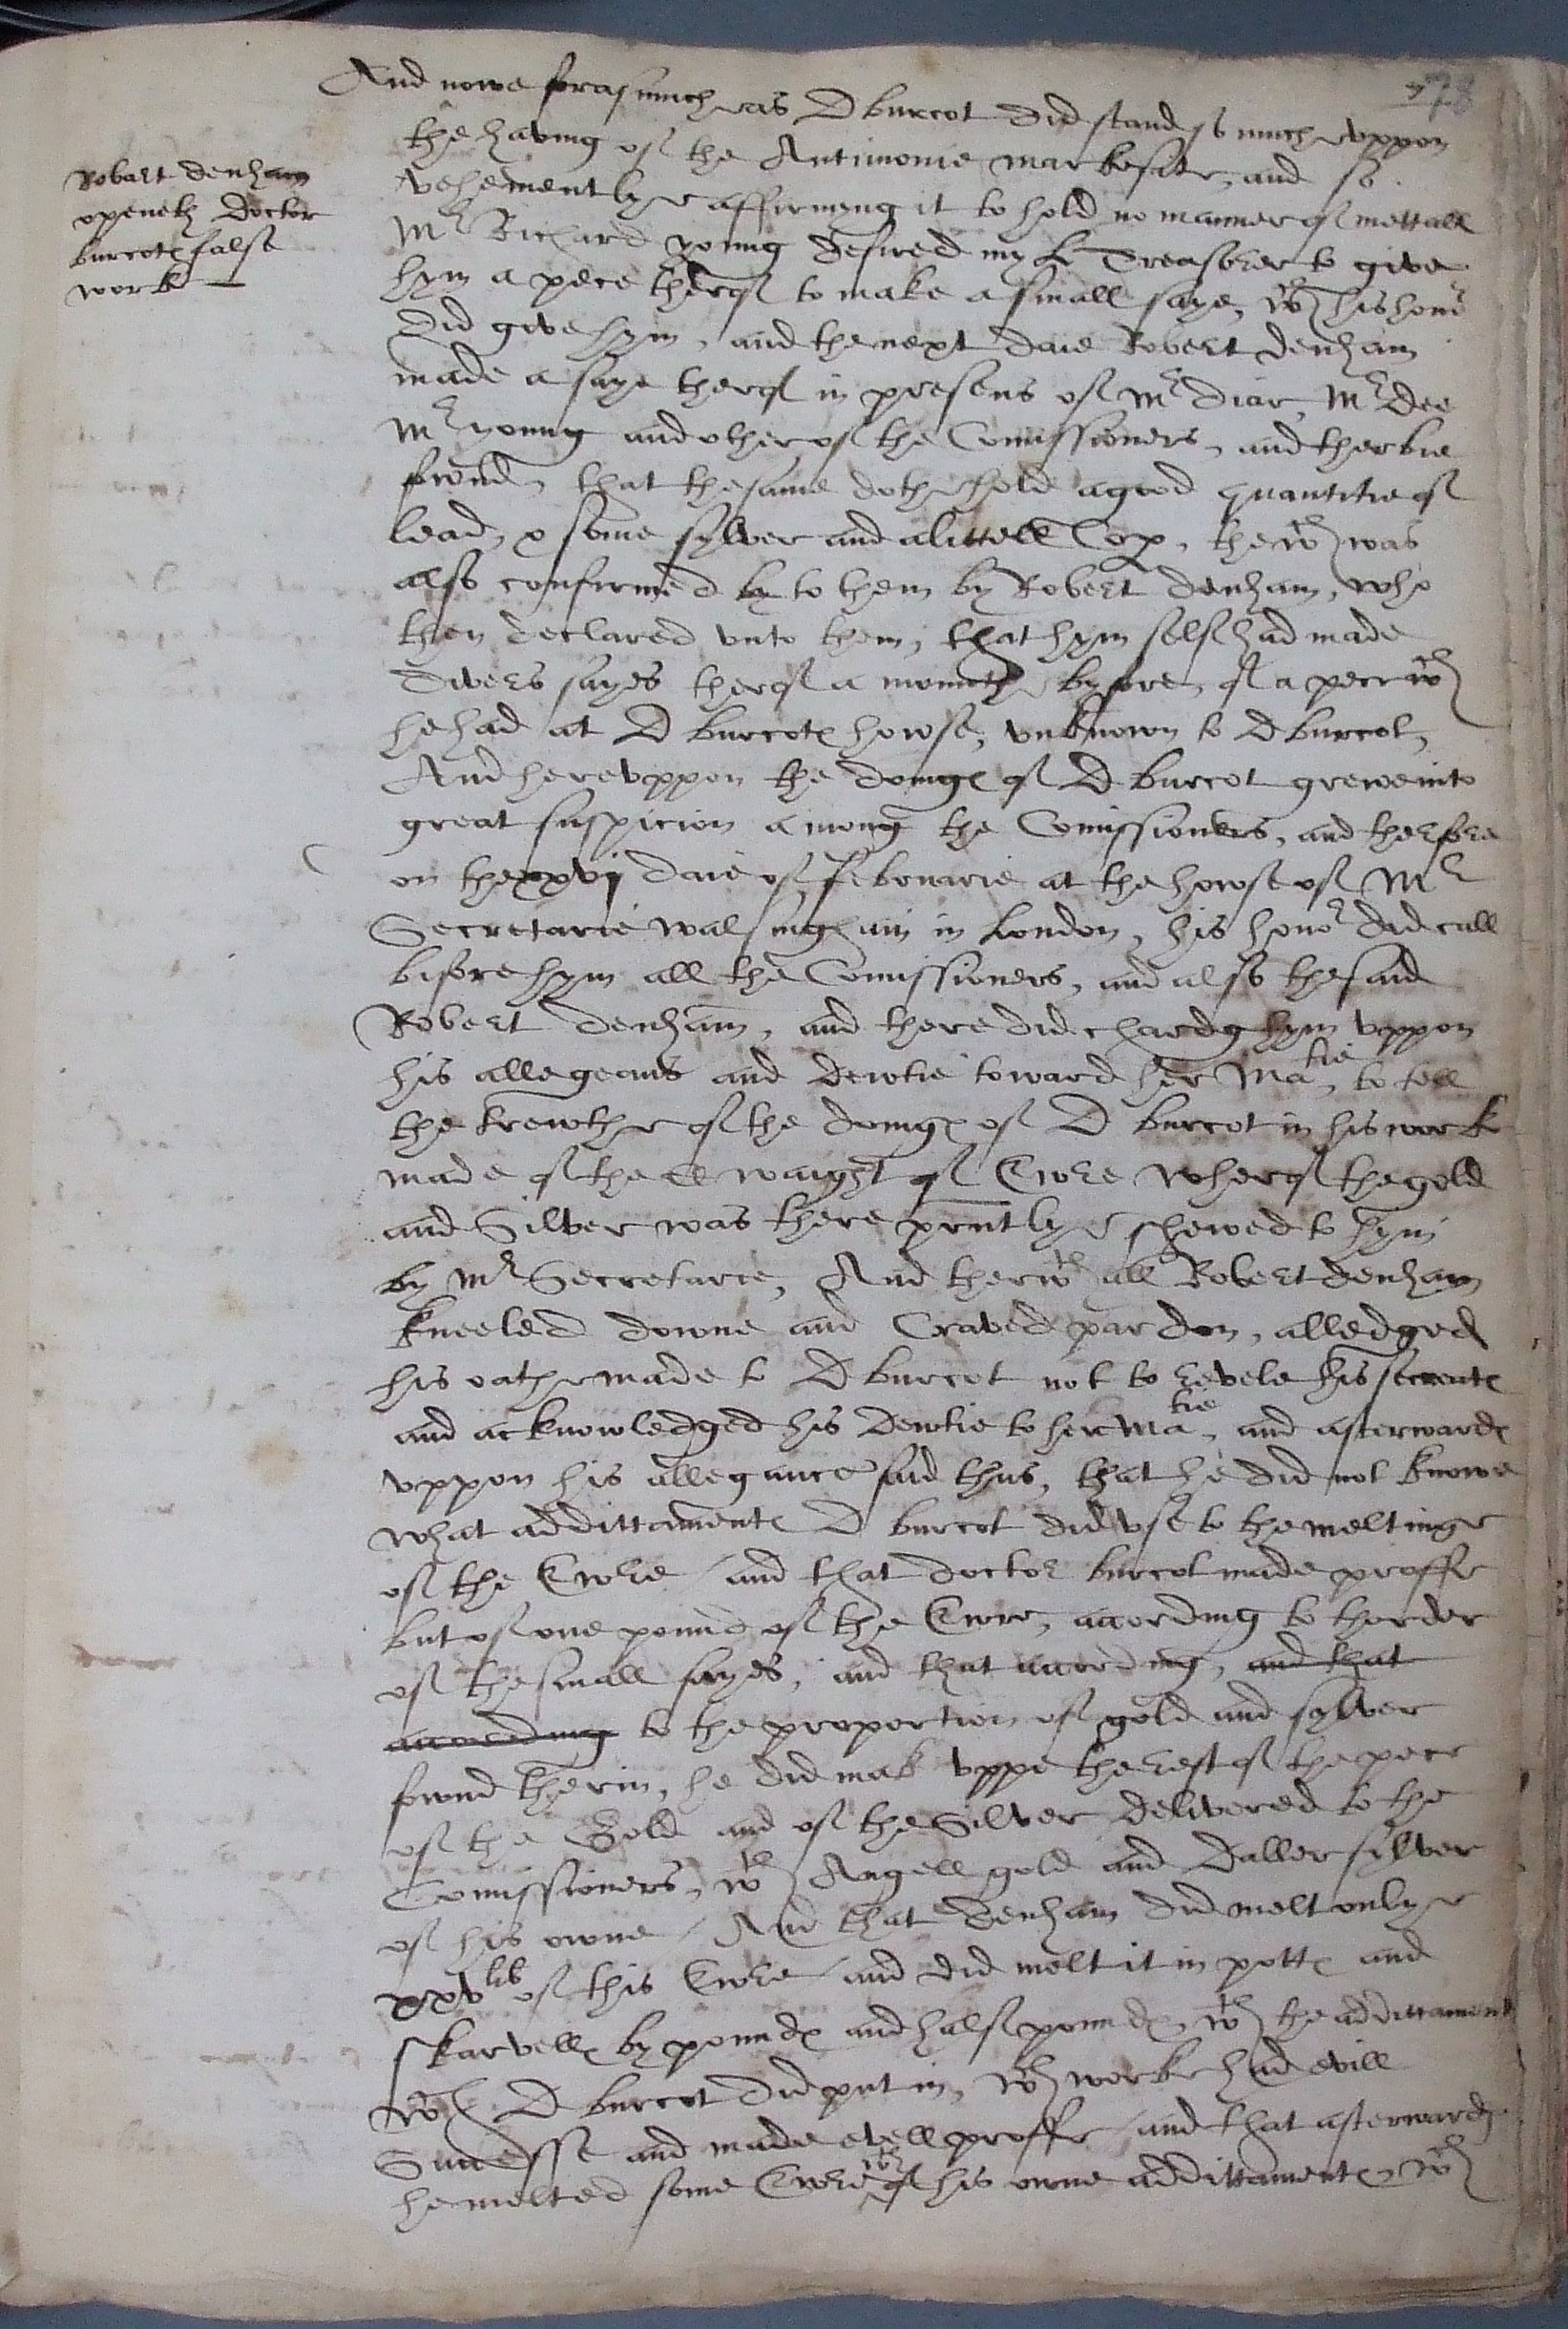 78
And nowe forasmuch as D burcot did stand so much uppon
the having of the Antimonie markesite, and so
vehementlye affirmyng it to hold no manner of mettall
Mr Richard young desired my L Treasorer to give
hym a pece therof to make a small saye, wch his honor
did give hym, and the next daie Robert denham
made a saye therof in presens of Mr diar, Mr dee
Mr young and other of the Comissioners, and therbie
fownd, that the same doth hold a good quantitie of
lead, & some sylver and a littell Cop, the wch was
also confirmed by to them by Robert denham, who
then declared unto them, that hym self had made
divers sayes therof a moneth byfore, of a pece wch
he had at D burcotes howse, unknown to D burcot,
And hereuppon the doinges of D burcot grewe into
great suspicion among the Comissioners, and therfore
on the xxvj daie of Februarie at the howse of Mr
Secretarie walsingham in London, his honor did call
bifore hym all the Comissioners, and also the said
Robert denham, and there did chardg hym uppon
his allegeans and dewtie toward her Matie, to tell
the trewthe of the doinges of D burcot in his work
made of the CC waight of Ewre wherof the gold
and Silver was there prntlye shewed to hym
by Mr Secretarie, And therwth all Robert denham
kneeled downe and Craved pardon, alledged
his oathe made to D burcot not to revele his secreates
and acknowledged his dewtie to her Matie, and afterwardes
uppon his allegance said thus, that he did not knowe
what addittamentes D burcot did use to the melting
of the Ewre / and that doctor burcot made proffe
but of one pound of the Ewre, acording to thorder
of the small sayes, and that acording, and that
acording to the proportion of gold and sylver
fownd therin, he did mak uppe the rest of the pece
of the Gold and of the Silver delivered to the
Comissioners, wth Angell gold and Daller sylver
of his owne / And that denham did melt onlye
xxv lib of this Ewre / and did melt it in pottes and
skarvelles by poundes and half poundes, wth the addittamentes
wch D burcot did put in, wch worke had evill
Successe and made evell proffe / and that afterwardes
he melted some Ewre wth of his owne addittamentes, wch
Robart denham
openeth Doctor
burcotes false
work